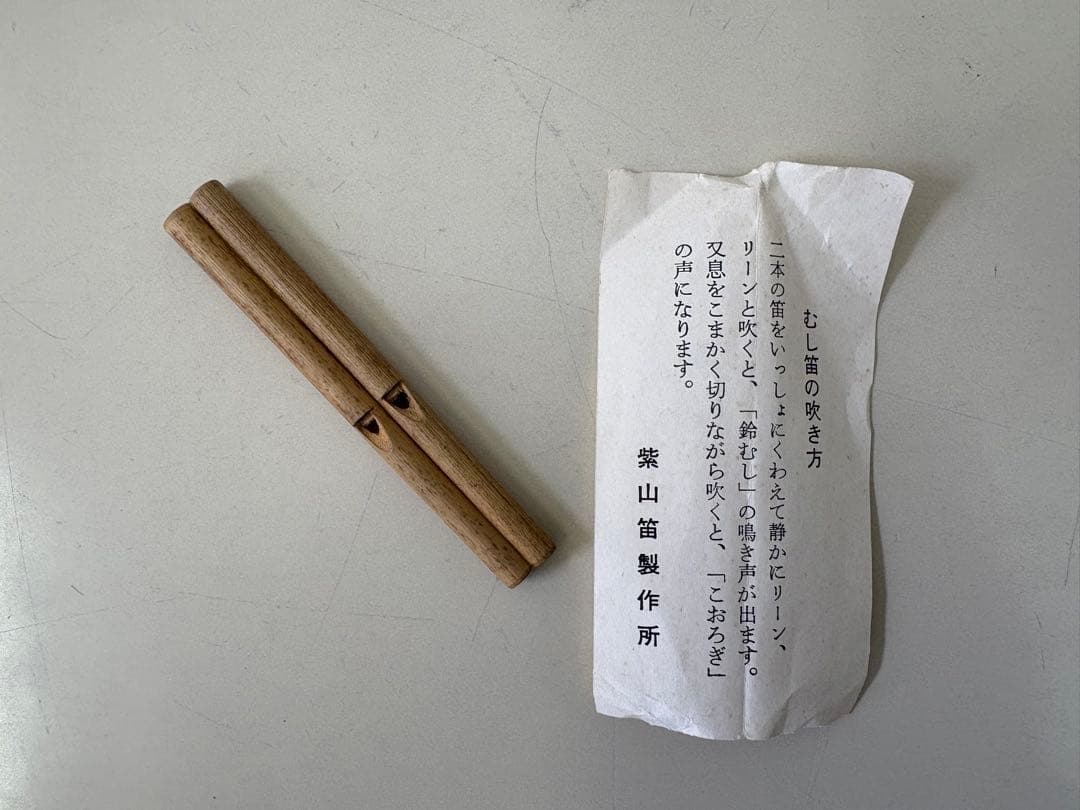 むし笛の吹き方
二本の笛をいっしょにくわえて静かにリーン、
リーンと吹くと、「鈴むし」の鳴き声が出ます。
又息をこまかく切りながら吹くと、「こおろぎ」
の声になります。
紫山笛製作所